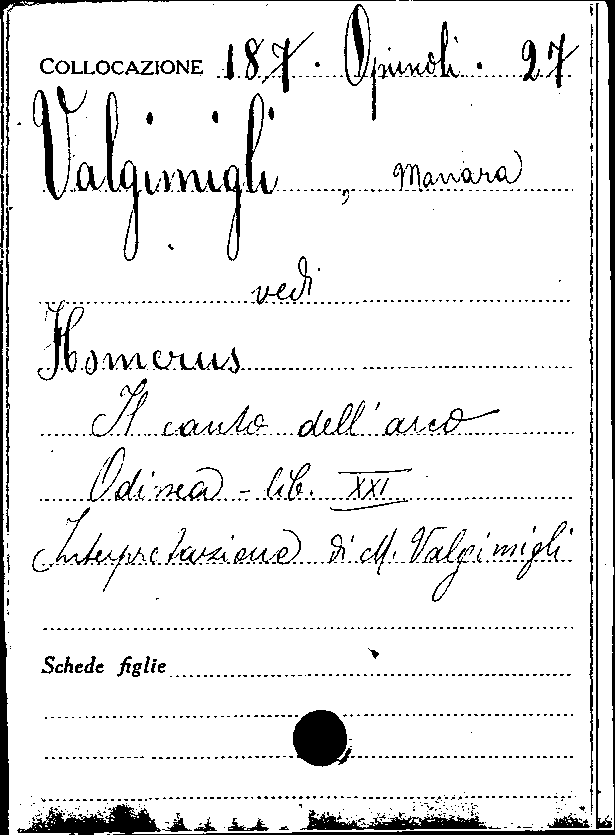 COLLOCAZIONE 187. Opuscoli. 27
Valgimigli, Manara
vedi
Homerus
Il canto dell'arco
Odissea - lib. XXI
Interpretazione di M. Valgimigli
Schede figlie